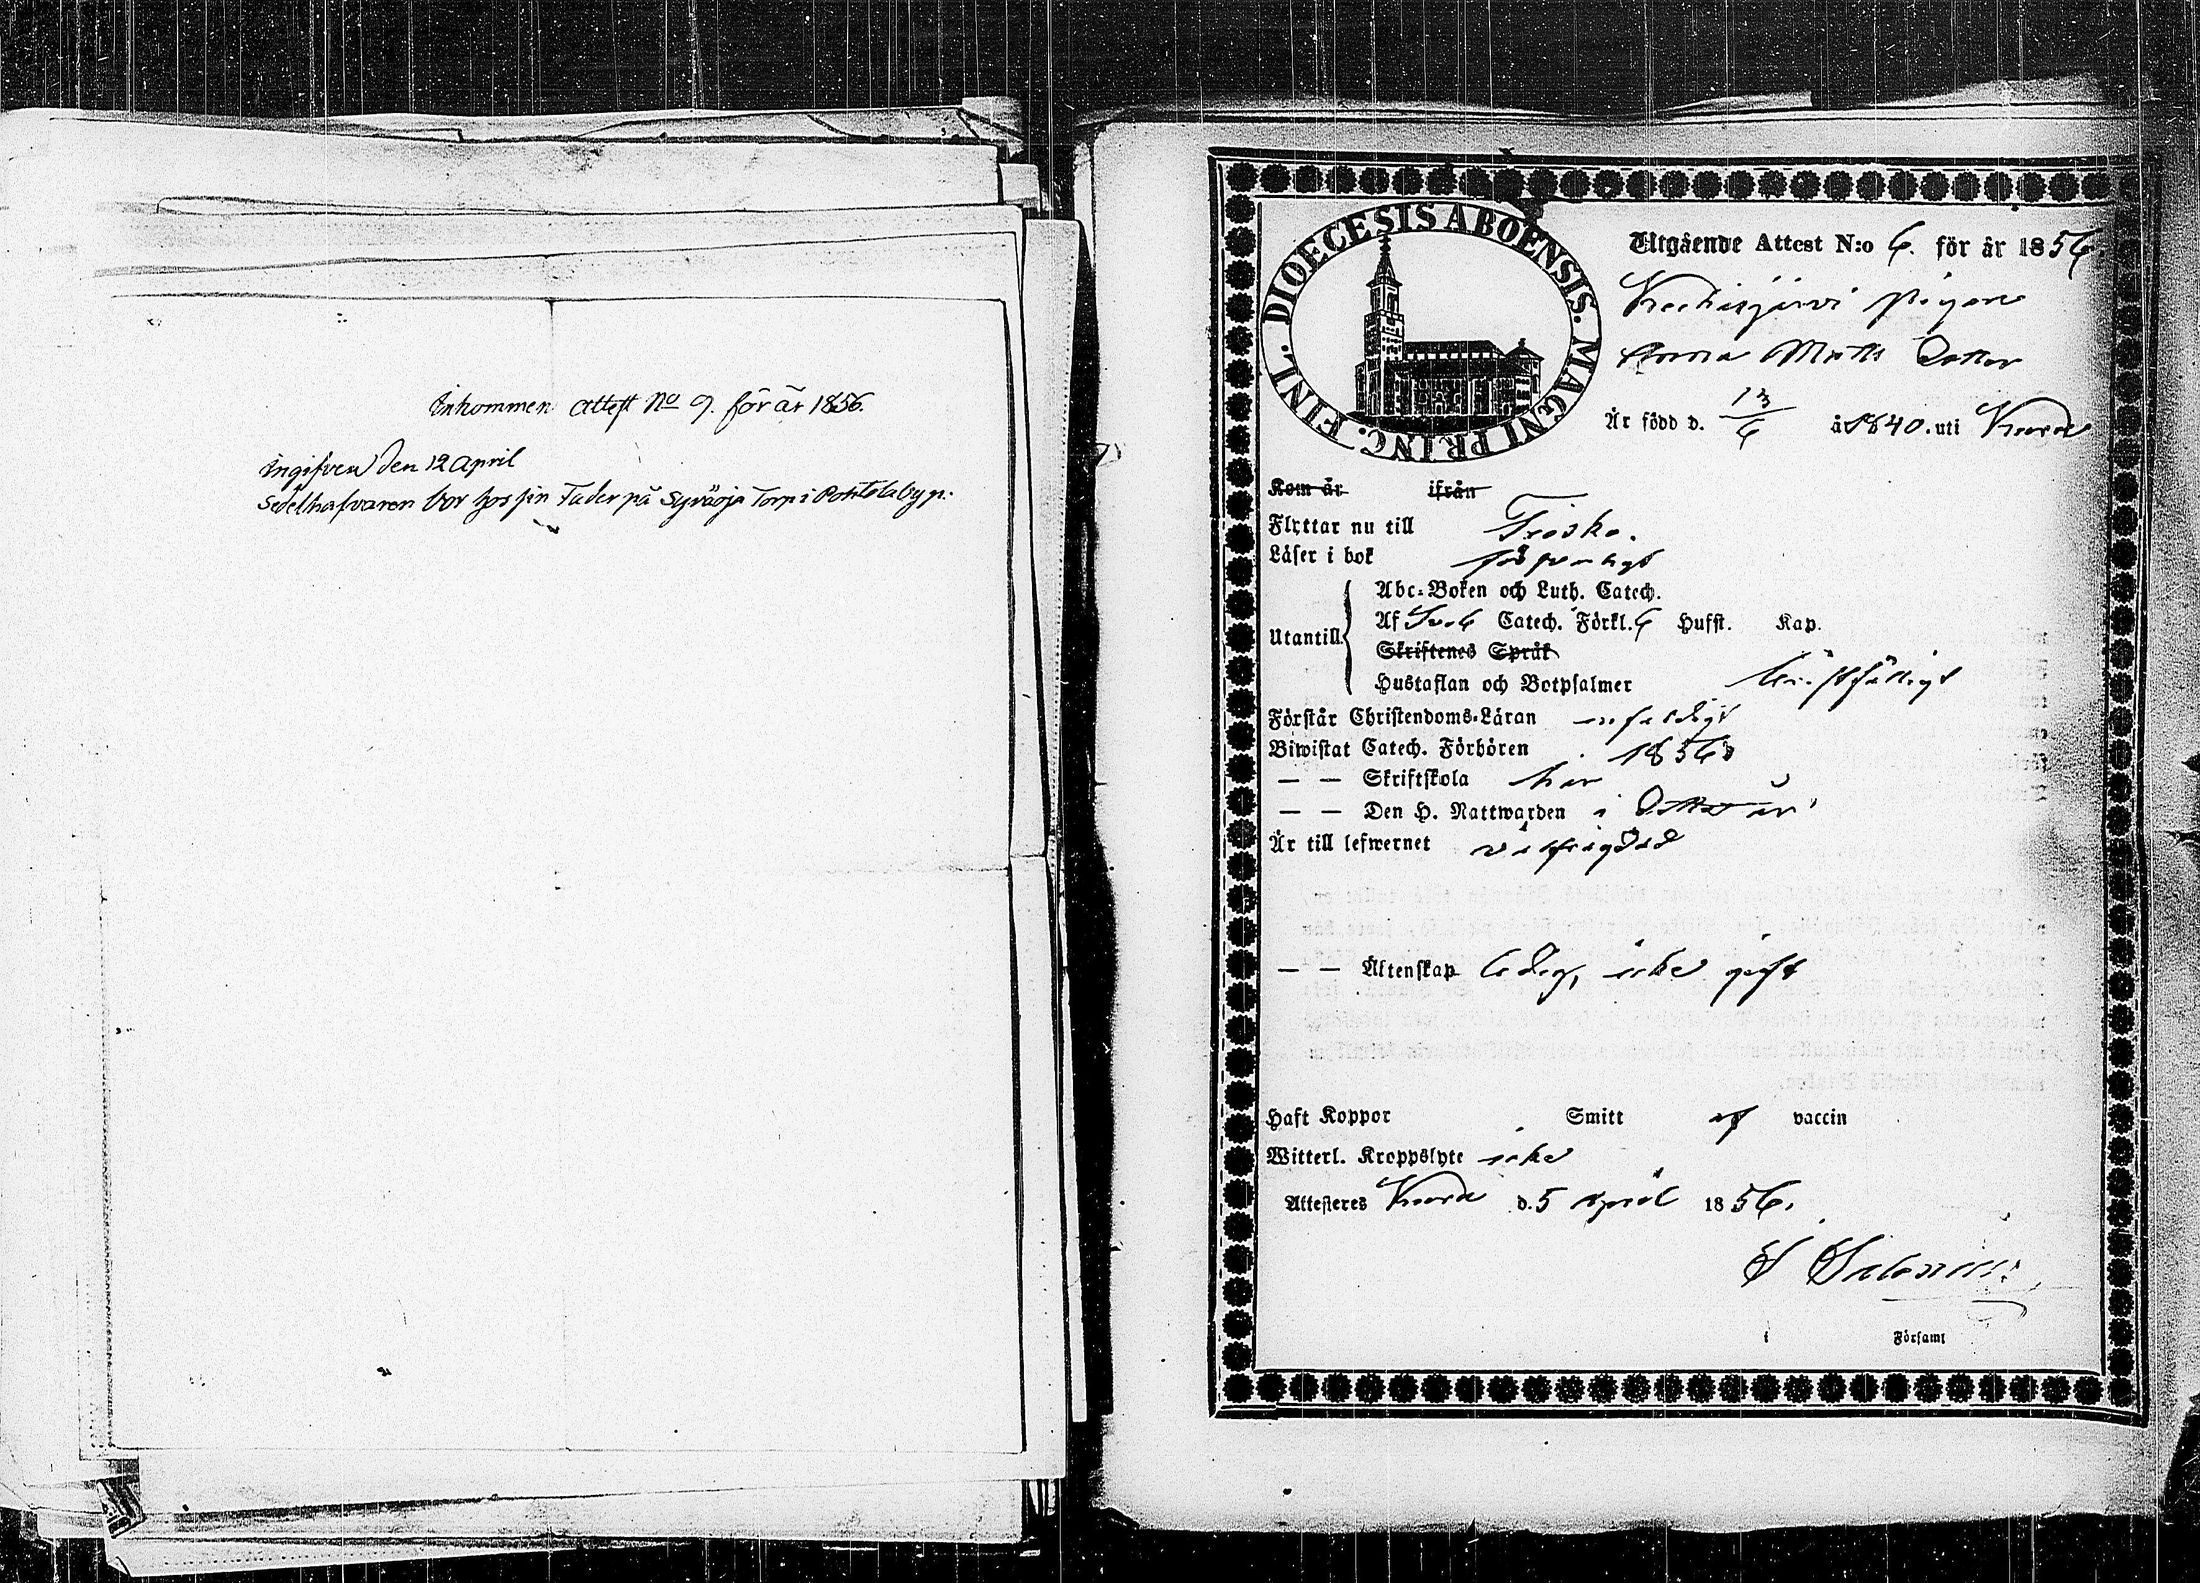 Inkommen attest No 9. för år 1856.
Ingifven den 12 April
Sedelhafvaren bor hos sin Fader på Syväoja Torp i Pohtola by p.
DIOECESIS ABOENSIS. MAGNI PRINC. FINL.
Utgående Attest N:o 6. för år 1856.
pigan
Anna Matts Dotter
Är född d. 13/6 å 1840. uti
Kom år ifrån
Flyttar nu till
Läser i bok försvarligt
Abc-Boken och Luth. Catech.
Utantill
Af Sveb Catech. Förkl. 6 Hufst. Kap.
Skriftenes Språk
Hustaflan och Botpsalmer
Förstår Christendoms-Läran enfaldigt
Biwistat Catech. Förhören 1856
— — Skriftskola här
— — Den H. Nattwarden i år
Är till lefwernet välfrägdad
— — Äktenskap ledig, icke gift
Haft Koppor Smitt af vaccin
Witterl. Kroppslyte icke
Attesteres d. 5 April 1856.
i Församl